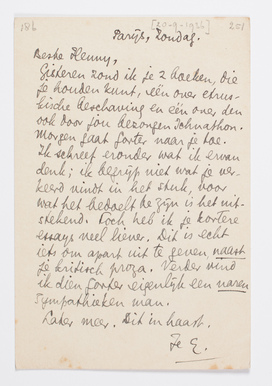 186 [20-9-1926] 251
Parijs, Zondag.
Beste Henny,
Gisteren zond ik je 2 boeken, die
je houden kunt, één over etrus-
kische beschaving en één over den
ook door jou bezongen Johnathon.
Morgen gaat Forter naar je toe.
Ik schreef eronder wat ik ervan
denk; ik begrijp niet wat je ver-
keerd vindt in het stuk, voor
wat het bedoelt te zijn is het uit-
stekend. Toch heb ik je kortere
essays veel liever. Dit is echt
iets om apart uit te geven, naast
je kritisch proza. Verder vind
ik dien Forter eigenlijk een naren
sympathieken man.
Later meer. Dit in haast.
Je E.